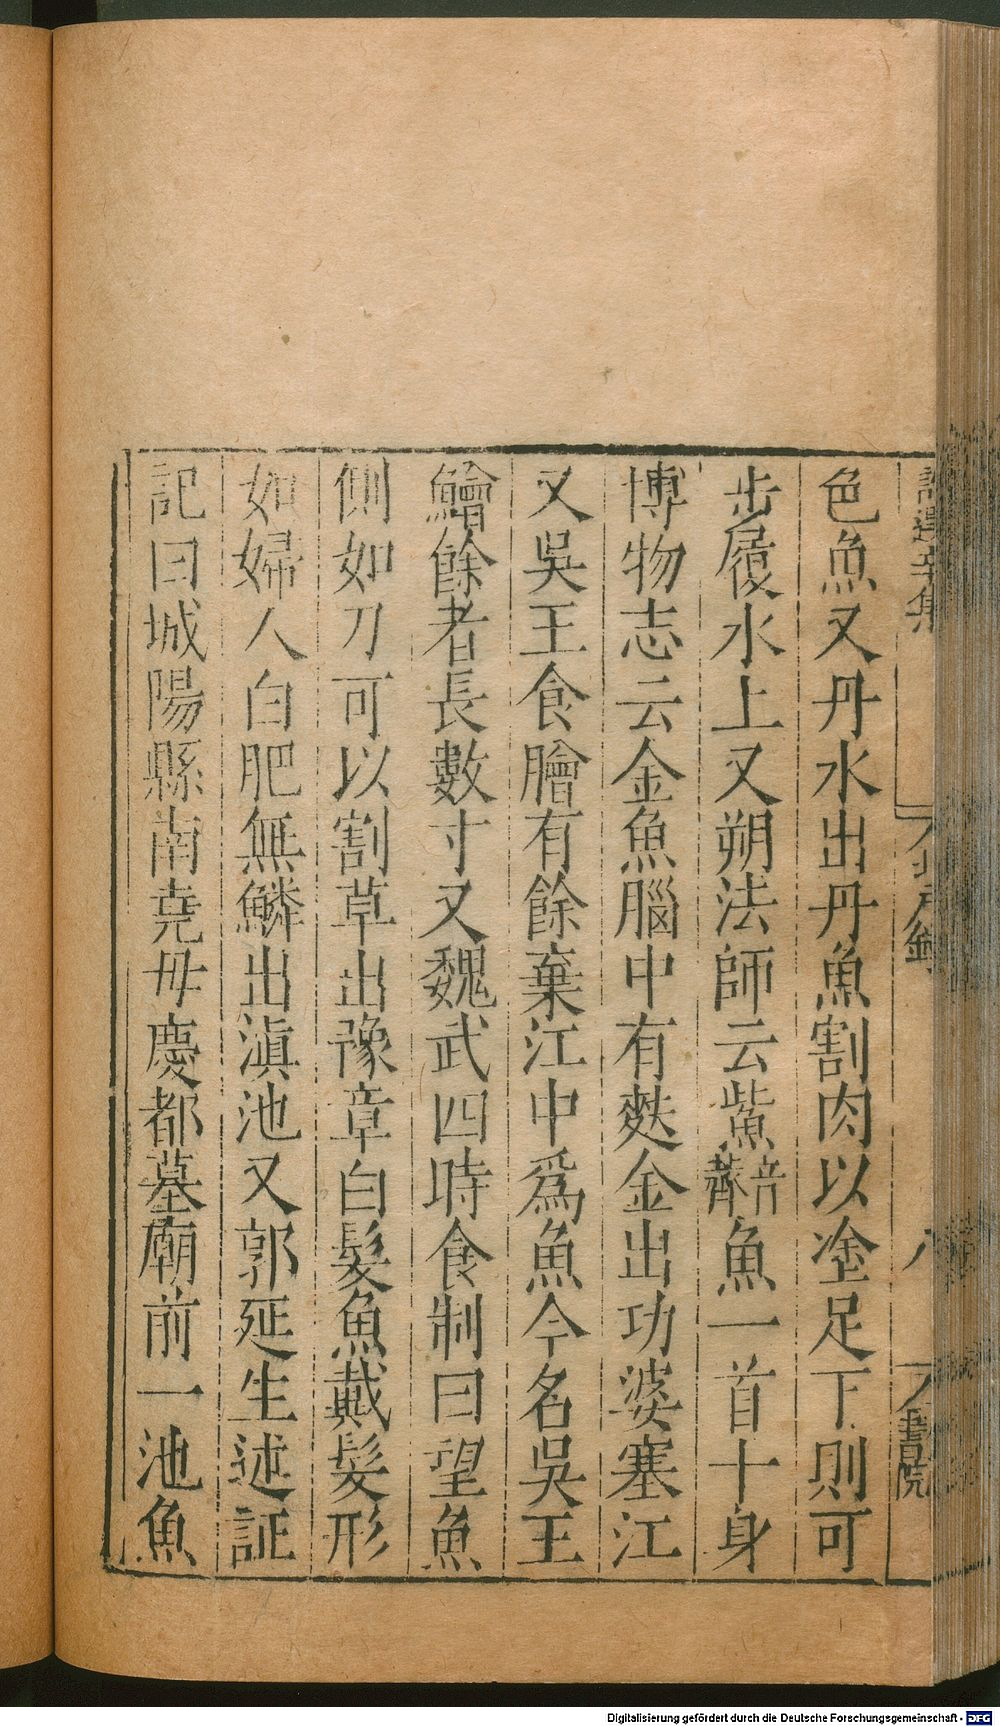 色魚又丹水出丹魚割肉以塗足下則可
步履水上又朔法師云鮆音薺魚一首十身
博物志云金魚腦中有麩金出功婆塞江
又吳王食膾有餘棄江中爲魚今名吳王
鱠餘者長數寸又魏武四時食制曰望魚
側如刀可以割草出豫章白髮魚戴髮形
如婦人白肥無鱗出滇池又郭延生述証
記曰城陽縣南堯毋慶都墓廟前一池魚
八
書院
Digitalisierung gefördert durch die Deutsche Forschungsgemeinschaft - DFG